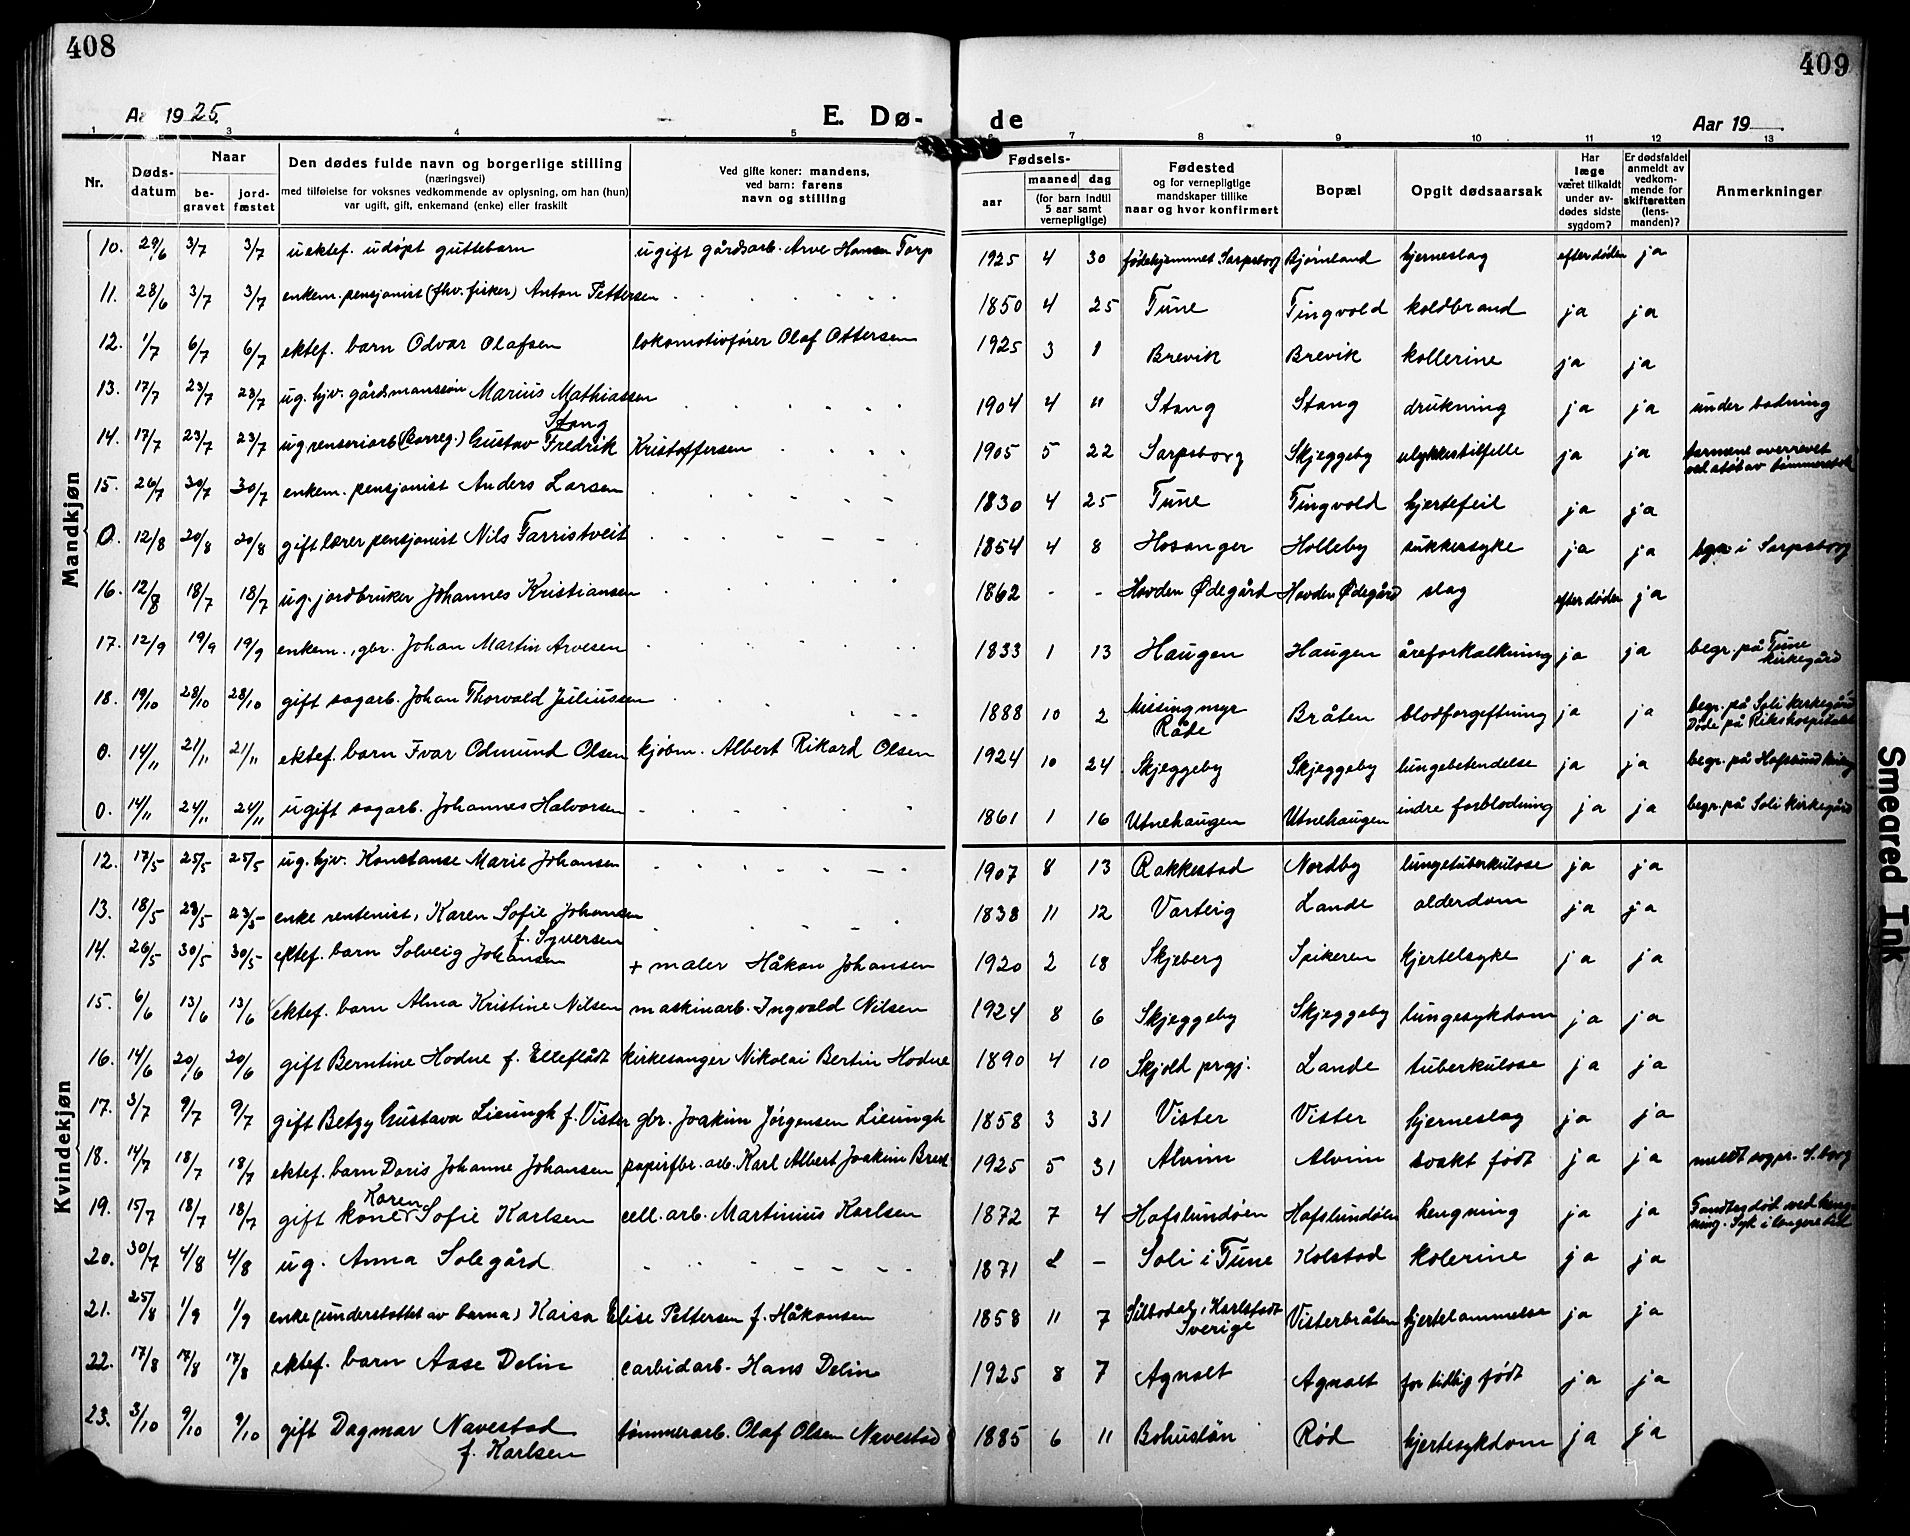 408
409
Aar 1925.
E. Dø-
de
Aar 19
1 3 4 5 7 8 9 10 11 12 13
Nr.
Døds-
datum
Naar
be-
gravet
jord-
fæstet
Den dødes fulde navn og borgerlige stilling
(næringsvei)
med tilføielse for voksnes vedkommende av oplysning, om han (hun)
var ugift, gift, enkemand (enke) eller fraskilt
Ved gifte koner: mandens,
ved barn: farens
navn og stilling
Fødsels-
aar
maaned dag
(for barn indtil
5 aar samt
vernepligtige)
Fødested
og for vernepligtige
mandskaper tillike
naar og hvor konfirmert
Bopæl
Opgit dødsaarsak
Har
læge
været tilkaldt
under av-
dødes sidste
sygdom?
Er dødsfaldet
anmeldt av
vedkom-
mende for
skifteretten
(lens-
manden)?
Anmerkninger
Mandkjøn
10. 29/6 3/7 3/7 uektef. udøpt guttebarn ugift gårdsarb. Arve Hansen Torp 1925 4 30 fødehjemmet Sarpsborg Bjørnland hjerneslag efter døden ja
11. 28/6 3/7 3/7 enkem. pensjonist (fhv. fisker) Anton Pettersen 1850 4 25 Tune Tingvold koldbrand ja ja
12. 1/7 6/7 6/7 ektef. barn Odvar Olafsen lokomotivfører Olaf Ottersen 1925 3 1 Brevik Brevik kollerine ja ja
13. 17/7 23/7 23/7 ug. hjv. gårdmannssøn Marius Mathiassen Stang 1904 4 11 Stang Stang drukning ja ja under badning
14. 17/7 23/7 23/7 ug renseriarb (Borreg.) Gustav Fredrik Kristoffersen 1905 5 22 Sarpsborg Skjeggeby ulykkestilfelle ja ja tarmene overrevet
ved støt av tømmerstok
15. 26/7 30/7 30/7 enkem. pensjonist Anders Larsen 1830 4 25 Tune Tingvold hjertefeil ja ja
0. 12/8 20/8 20/8 gift lærer pensjonist Nils Farristveit 1854 4 8 Hosanger Holleby sukkersyke ja ja bgr. i Sarpsborg
16. 12/8 18/7 18/7 ug. jordbruker Johannes Kristiansen 1862 - - Hovden Ødegård Hovden Ødegård slag efter døden ja
17. 12/9 19/9 19/9 enkem., gbr. Johan Martin Arvesen 1833 1 13 Haugen Haugen åreforkalkning ja ja begr. på Tune
kirkegård
18. 19/10 28/10 28/10 gift sagarb. Johan Thorvald Juliussen 1888 10 2 Missingmyr
Råde Bråten blodforgiftning ja ja begr. på Soli kirkegård
Døde på Rikshospitalet
0. 14/11 21/11 21/11 ektef. barn Ivar Odmund Olsen kjøbm. Albert Rikard Olsen 1924 10 24 Skjeggeby Skjeggeby lungebetendelse ja ja begr. på Hafslund kirkeg
0. 14/11 24/11 24/11 ugift sagarb. Johannes Halvorsen 1861 1 16 Utnehaugen Utnehaugen indre forblødning ja ja begr. på Soli kirkegård
Kvindekjøn
12. 17/5 25/5 25/5 ug. hjv. Konstanse Marie Johansen 1907 8 13 Rakkestad Nordby lungetuberkulose ja ja
13. 18/5 23/5 23/5 enke rentenist, Karen Sofie Johansen
f. Syversen 1838 11 12 Varteig Lande alderdom ja ja
14. 26/5 30/5 30/5 ektef. barn Solveig Johansen + maler Håkon Johansen 1920 2 18 Skjeberg Spikeren kjertelsyke ja ja
15. 6/6 13/6 13/6 ektef. barn Alma Kristine Nilsen maskinarb. Ingvald Nilsen 1924 8 6 Skjeggeby Skjeggeby lungesykdom ja ja
16. 14/6 20/6 20/6 gift Berntine Hodne f. Elleflådt kirkesanger Nikolai Bertin Hodne 1890 4 10 Skjold prgj. Lande tuberkulose ja ja
17. 3/7 9/7 9/7 gift Betzy Gustava Lisungh f. Vister gbr. Joakim Jørgensen Lisungh 1858 3 31 Vister Vister hjerneslag ja ja
18. 14/7 18/7 18/7 ektef. barn Doris Johanne Johansen papirfbr. arb. Karl Albert Joakim Brest 1925 5 31 Alvim Alvim svakt født ja ja meldt sogpr. S.borg
19. 15/7 18/7 18/7 gift kone Karen Sofie Karlsen cell. arb. Martinius Karlsen 1872 7 4 Hafslundøen Hafslundøen hengning ja ja Fandtes død ved heng-
ning. Syk i lengere tid
20. 30/7 4/8 4/8 ug. Anna Solegård 1871 2 - Soli i Tune Kolstad kolerine ja ja
21. 25/8 1/9 1/9 enke (understøttet av barna) Kaisa Elise Pettersen f. Håkansen 1858 11 7 Silbodal, Karlstadt
Sverige Visterbråten hjertelammelse ja ja
22. 17/8 17/8 17/8 ektef. barn Aase Delin carbidarb. Hans Delin 1925 8 7 Agnalt Agnalt for tidlig født ja ja
23. 3/10 9/10 9/10 gift Dagmar Navestad
f. Karlsen tømmerarb. Olaf Olsen Navestad 1885 6 11 Bohuslän Rød hjertesykdom ja ja
Smeared Ink